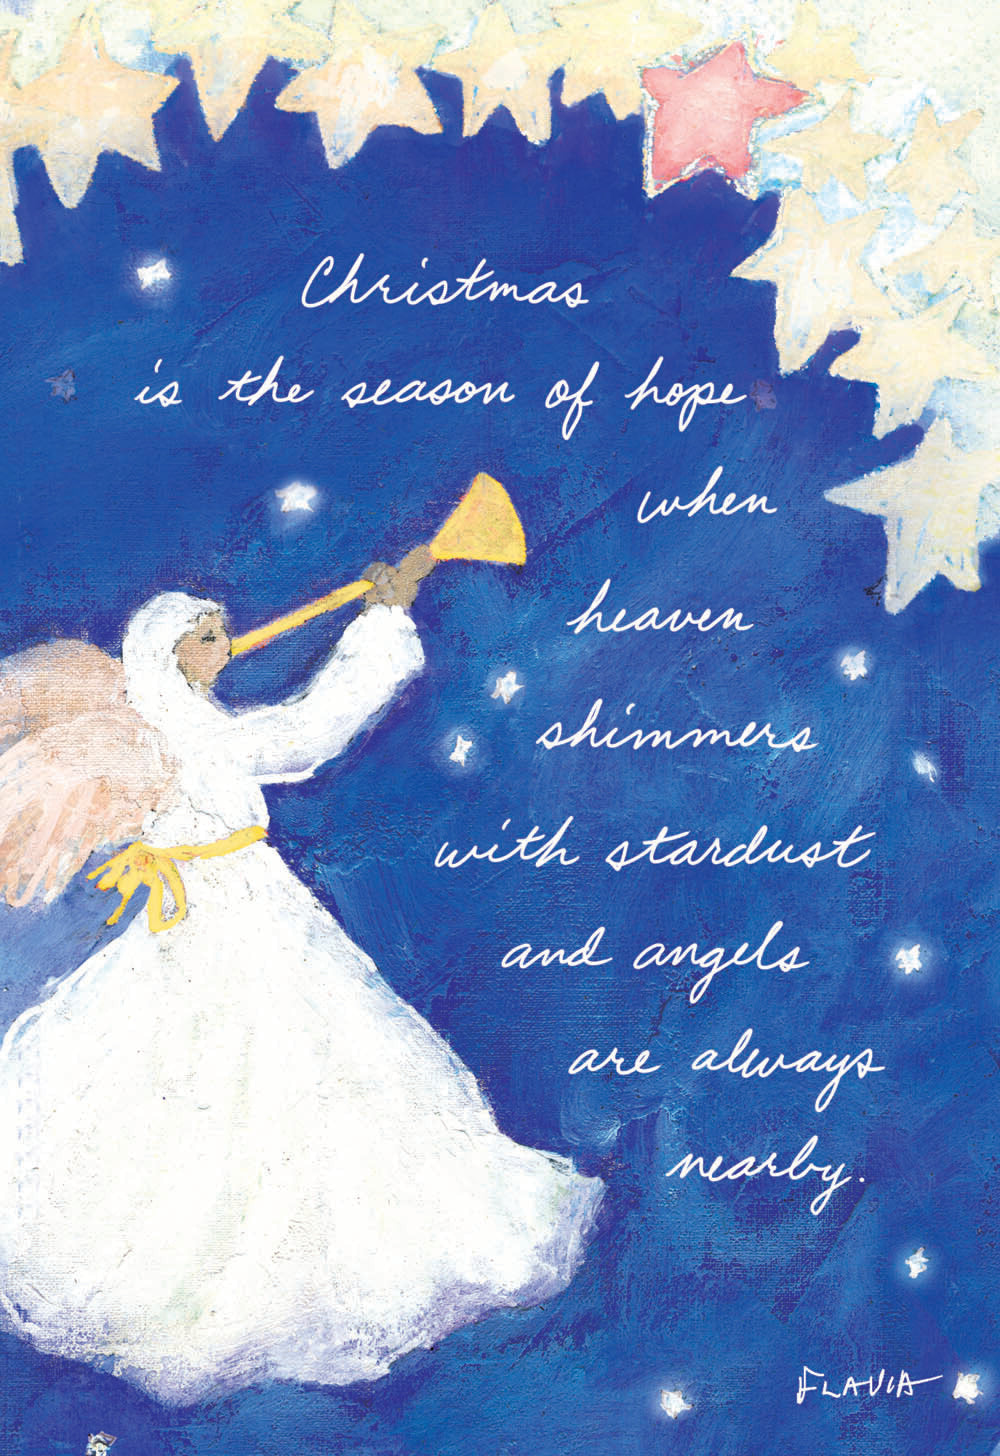 Christmas
is the season of hope
when
heaven
shimmers
with stardust
and angels
are always
nearby.
FLAVIA